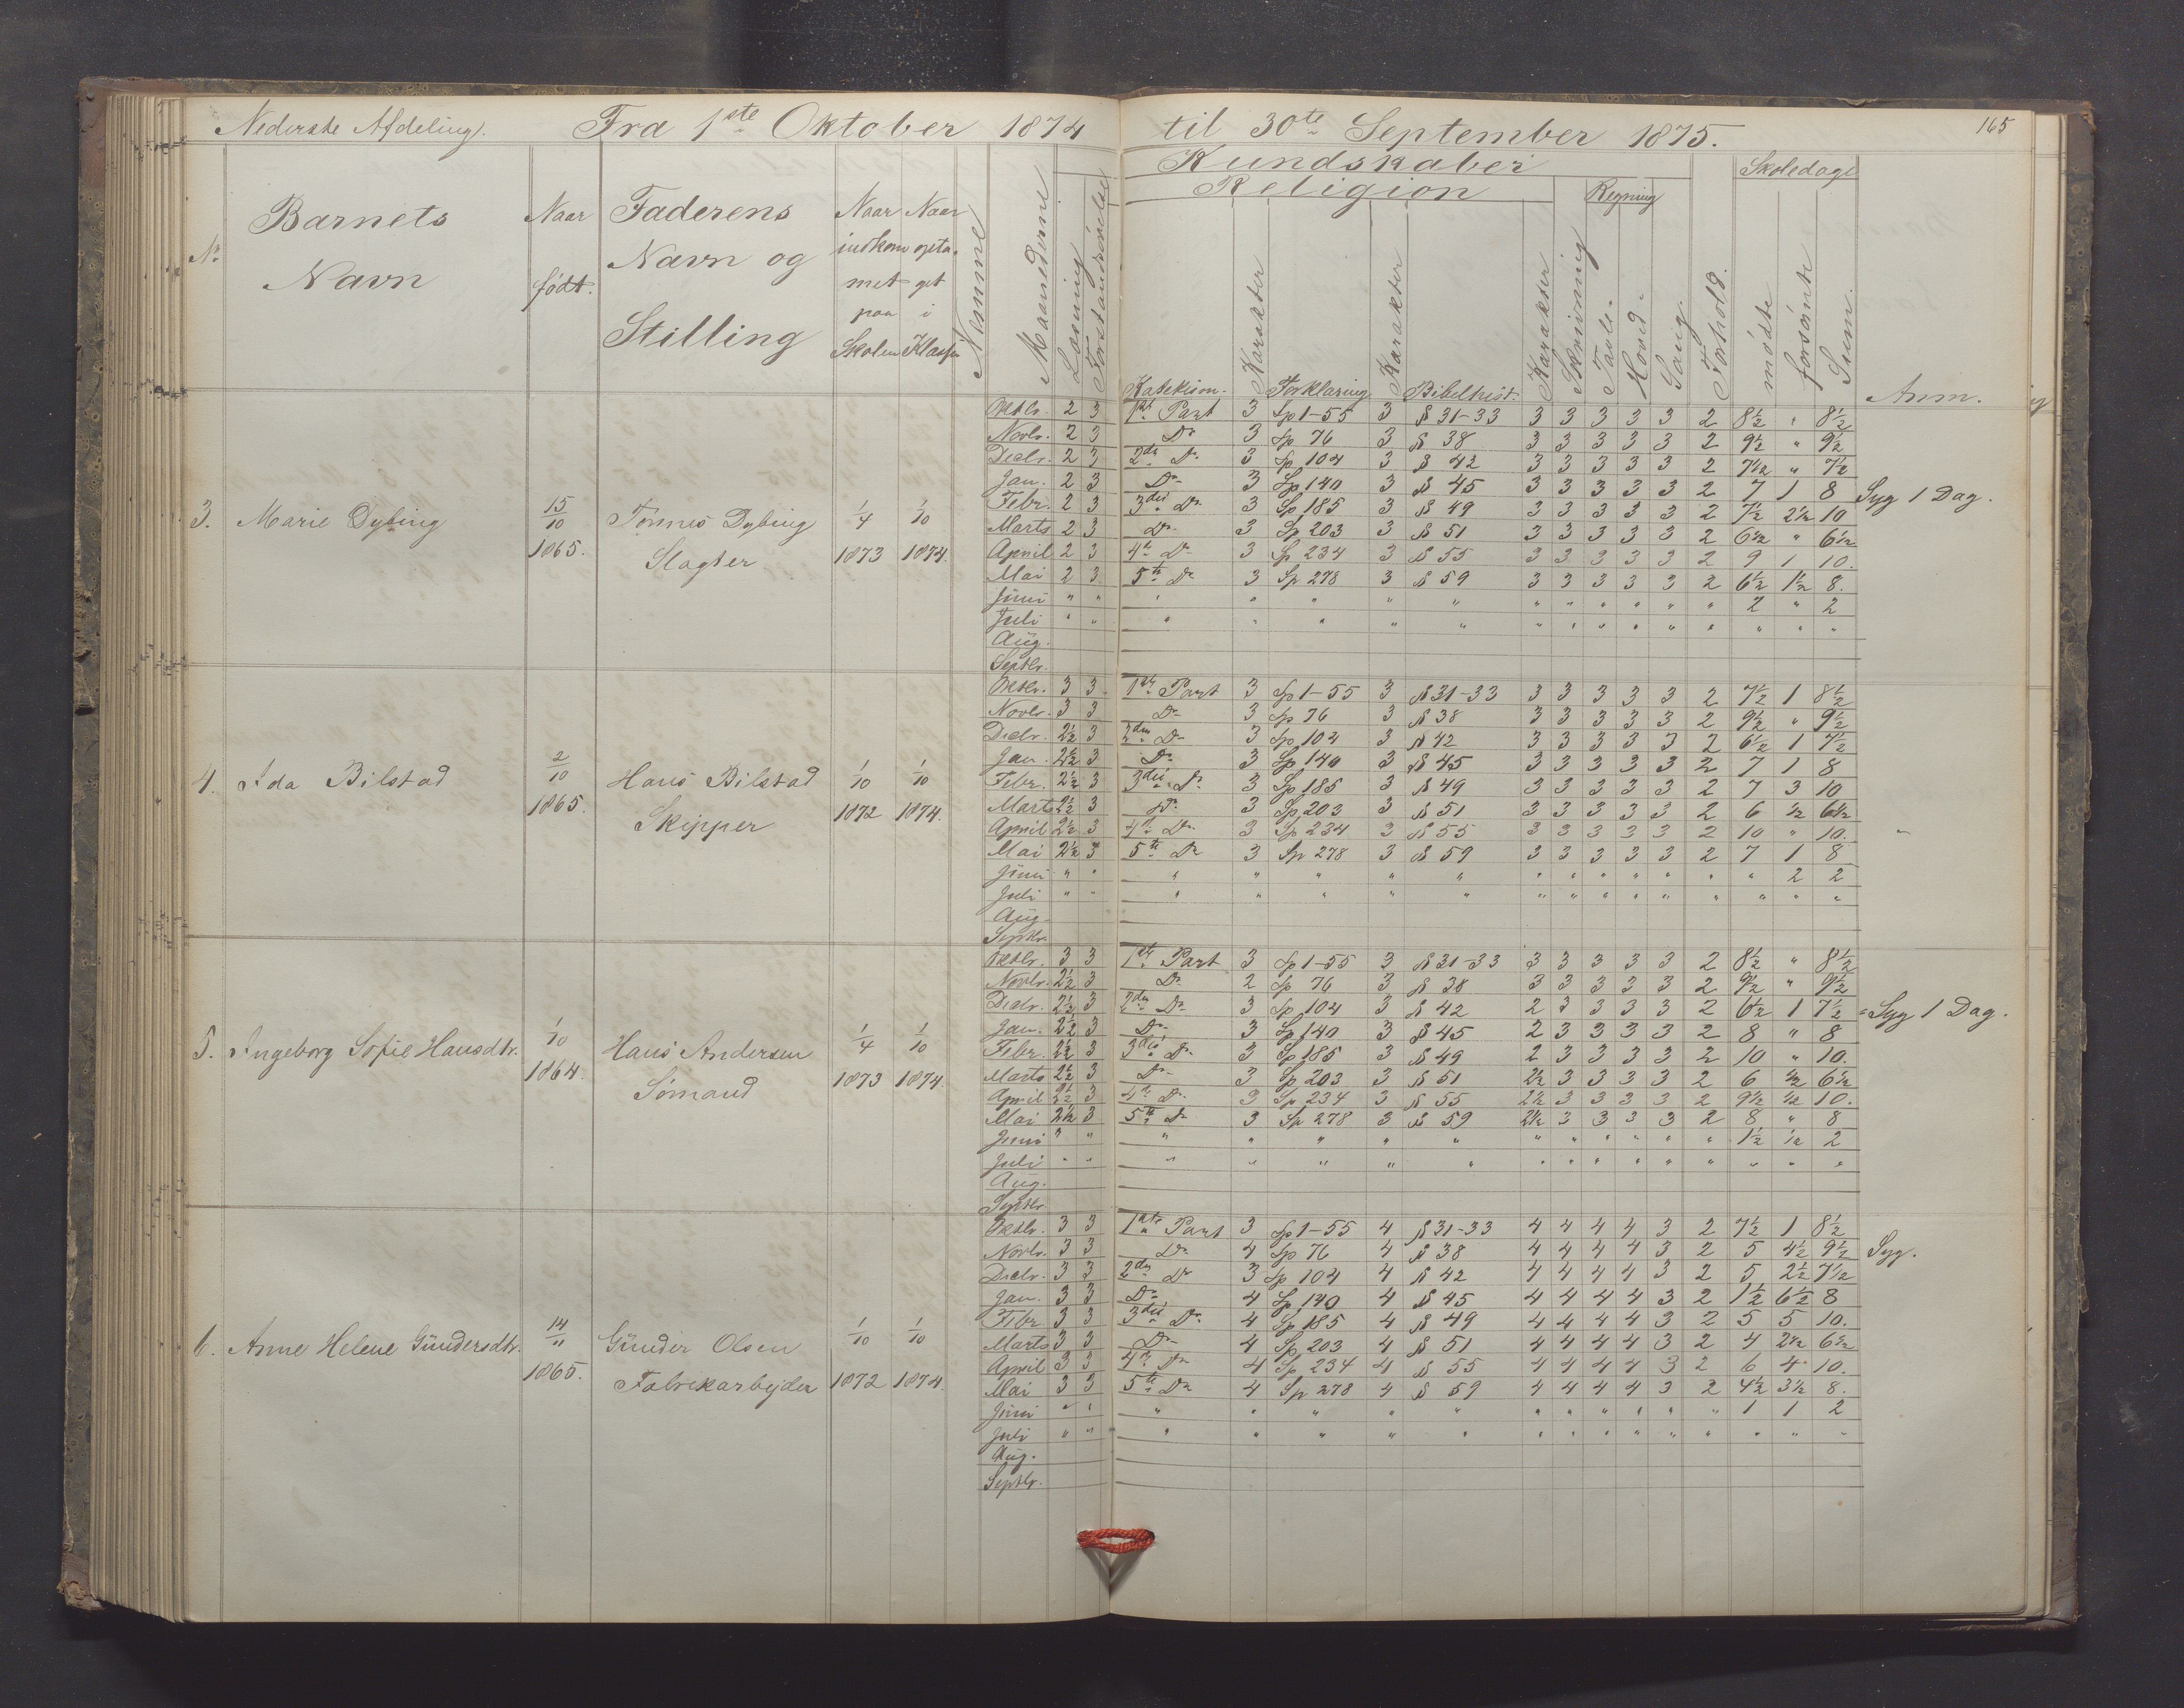 Nederste Afdeling. Fra 1ste Oktober 1874 til 30te September 1875. 165
Kundskaber
Religion Regning Skoledage
No Barnets Navn Naar født. Faderens Navn og Stilling Naar indkommet paa Skolen Naar optaget i Klassen Nemme Maanederne Læsning Forstandsøvelse Katekism. Karakter Forklaring Karakter Bibelhist. Karakter Skrivning Tavle- Hoved- Sang. Forhold. mødte forsømte Sum. Anm.
3. Marie Dybing 15/10 1865. Tønnes Dybing Slagter 1/4 1873 1/10 1874.
Oktbr. 2 3 1ste Part 3 Sp 1-55 3 § 31-33 3 3 3 3 3 2 8½ " 8½
Novbr. 2 3 Do 3 Sp 76 3 § 38 3 3 3 3 3 2 9½ " 9½
Decbr. 2 3 2den Do 3 Sp 104 3 § 42 3 3 3 3 3 2 7½ " 7½
Jan. 2 3 Do 3 Sp 140 3 § 45 3 3 3 3 3 2 7 1 8 Syg 1 Dag.
Febr. 2 3 3die Do 3 Sp 185 3 § 49 3 3 3 3 3 2 7½ 2½ 10
Marts 2 3 Do 3 Sp 203 3 § 51 3 3 3 3 3 2 6½ " 6½
April 2 3 4de Do 3 Sp 234 3 § 55 3 3 3 3 3 2 9 1 10.
Mai 2 3 5te Do 3 Sp 278 3 § 59 3 3 3 3 3 2 6½ 1½ 8.
Juni " " " " " " " " " " " " " 2 " 2
Juli " " " " " " " " " " " " " " " "
Aug.
Septbr.
4. Ida Bilstad 2/10 1865. Hans Bilstad Skipper 1/10 1872 1/10 1874.
Oktbr. 3 3 1ste Part 3 Sp 1-55 3 § 31-33 3 3 3 3 3 2 7½ 1 8½
Novbr. 3 3 Do 3 Sp 76 3 § 38 3 3 3 3 3 2 9½ " 9½
Decbr. 2½ 3 2den Do 3 Sp 104 3 § 42 3 3 3 3 3 2 6½ 1 7½
Jan. 2½ 3 Do 3 Sp 140 3 § 45 3 3 3 3 3 2 7 1 8
Febr. 2½ 3 3die Do 3 Sp 185 3 § 49 3 3 3 3 3 2 7 3 10
Marts 2½ 3 Do 3 Sp 203 3 § 51 3 3 3 3 3 2 6 ½ 6½
April 2½ 3 4de Do 3 Sp 234 3 § 55 3 3 3 3 3 2 10 " 10.
Mai 2½ 3 5te Do 3 Sp 278 3 § 59 3 3 3 3 3 2 7 1 8
Juni " " " " " " " " " " " " " " 2 2
Juli " " " " " " " " " " " " " " " "
Aug.
Septbr.
5. Ingeborg Sofie Hansdtr. 1/10 1864. Hans Andersen Sømand 1/4 1873 1/10 1874.
Oktbr. 3 3 1ste Part 3 Sp 1-55 3 § 31-33 3 3 3 3 3 2 8½ " 8½
Novbr. 2½ 3 Do 2 Sp 76 3 § 38 3 3 3 3 3 2 9½ " 9½
Decbr. 2½ 3 2den Do 3 Sp 104 3 § 42 2 3 3 3 3 2 6½ 1 7½ Syg 1 Dag.
Jan. 2½ 3 Do 3 Sp 140 3 § 45 2 3 3 3 3 2 8 " 8
Febr. 2½ 3 3die Do 3 Sp 185 3 § 49 2 3 3 3 3 2 10 " 10.
Marts 2½ 3 Do 3 Sp 203 3 § 51 2½ 3 3 3 3 2 6 ½ 6½
April 2½ 3 4de Do 3 Sp 234 3 § 55 2½ 3 3 3 3 2 9½ ½ 10.
Mai 2½ 3 5te Do 3 Sp 278 3 § 59 2½ 3 3 3 3 2 8 " 8
Juni " " " " " " " " " " " " " 1½ ½ 2
Juli " " " " " " " " " " " " " " " "
Aug.
Septbr.
6. Anne Helene Gündersdtr. 14/11 1865. Günder Olsen Fabrikarbejder 1/10 1872 1/10 1874.
Oktbr. 3 3 1ste Part 3 Sp 1-55 4 § 31-33 4 4 4 4 3 2 7½ 1 8½
Novbr. 3 3 Do 4 Sp 76 4 § 38 4 4 4 4 3 2 5 4½ 9½ Syg.
Decbr. 3 3 2den Do 3 Sp 104 4 § 42 4 4 4 4 3 2 5 2½ 7½
Jan. 3 3 Do 4 Sp 140 4 § 45 4 4 4 4 3 2 1½ 6½ 8
Febr. 3 3 3die Do 4 Sp 185 4 § 49 4 4 4 4 3 2 5 5 10.
Marts 3 3 Do 4 Sp 203 4 § 51 4 4 4 4 3 2 4 2½ 6½
April 3 3 4de Do 4 Sp 234 4 § 55 4 4 4 4 3 2 6 4 10.
Mai 3 3 5te Do 4 Sp 278 4 § 59 4 4 4 4 3 2 4½ 3½ 8.
Juni " " " " " " " " " " " " " 1 1 2
Juli " " " " " " " " " " " " " " " "
Aug.
Septbr.